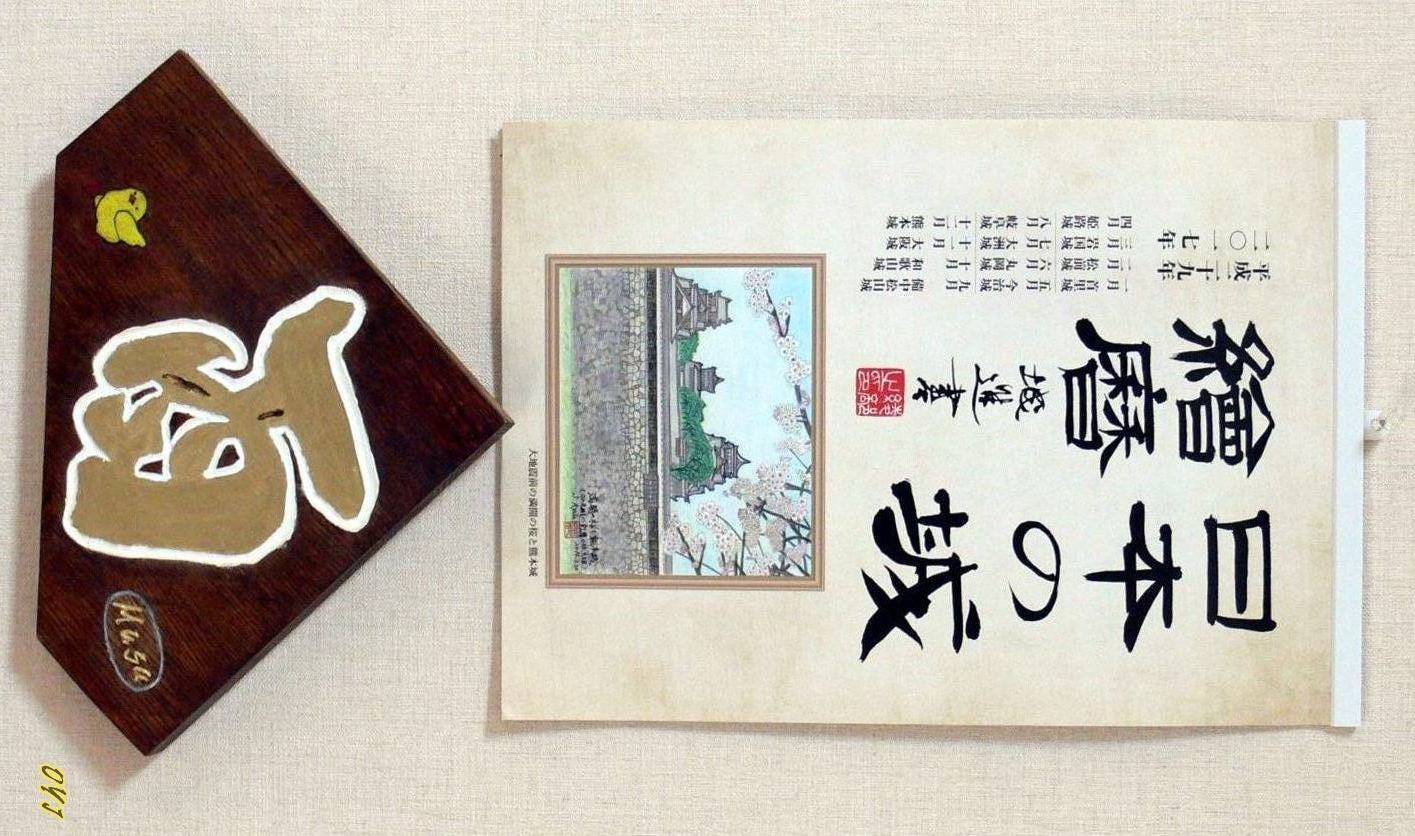 日本の城
繪暦
平成二十九年
二〇一七年
一月 首里城
二月 松前城
三月 岩国城
四月 姫路城
五月 今治城
六月 丸岡城
七月 大洲城
八月 岐阜城
九月 備中松山城
十月 和歌山城
十一月 大阪城
十二月 熊本城
大地震前の満開の桜と熊本城
Masa
OYJ